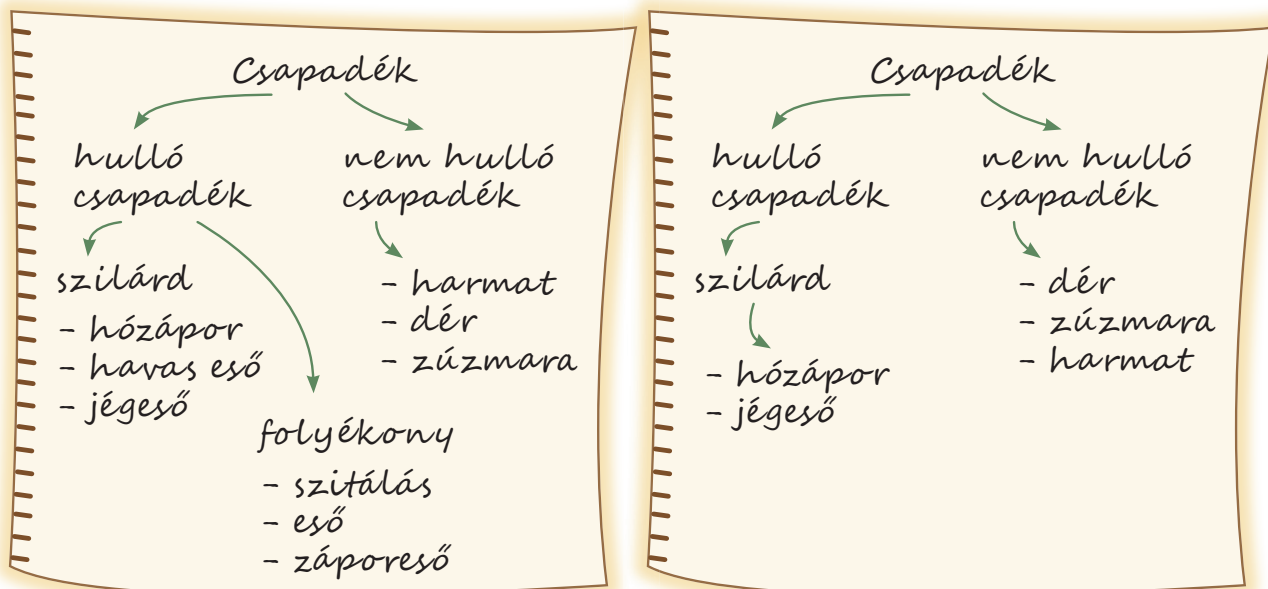 Csapadék
hulló
csapadék
nem hulló
csapadék
szilárd
- hózápor
- havas eső
- jégeső
- harmat
- dér
- zúzmara
folyékony
- szitálás
- eső
- záporeső
Csapadék
hulló
csapadék
nem hulló
csapadék
szilárd
- hózápor
- jégeső
- dér
- zúzmara
- harmat